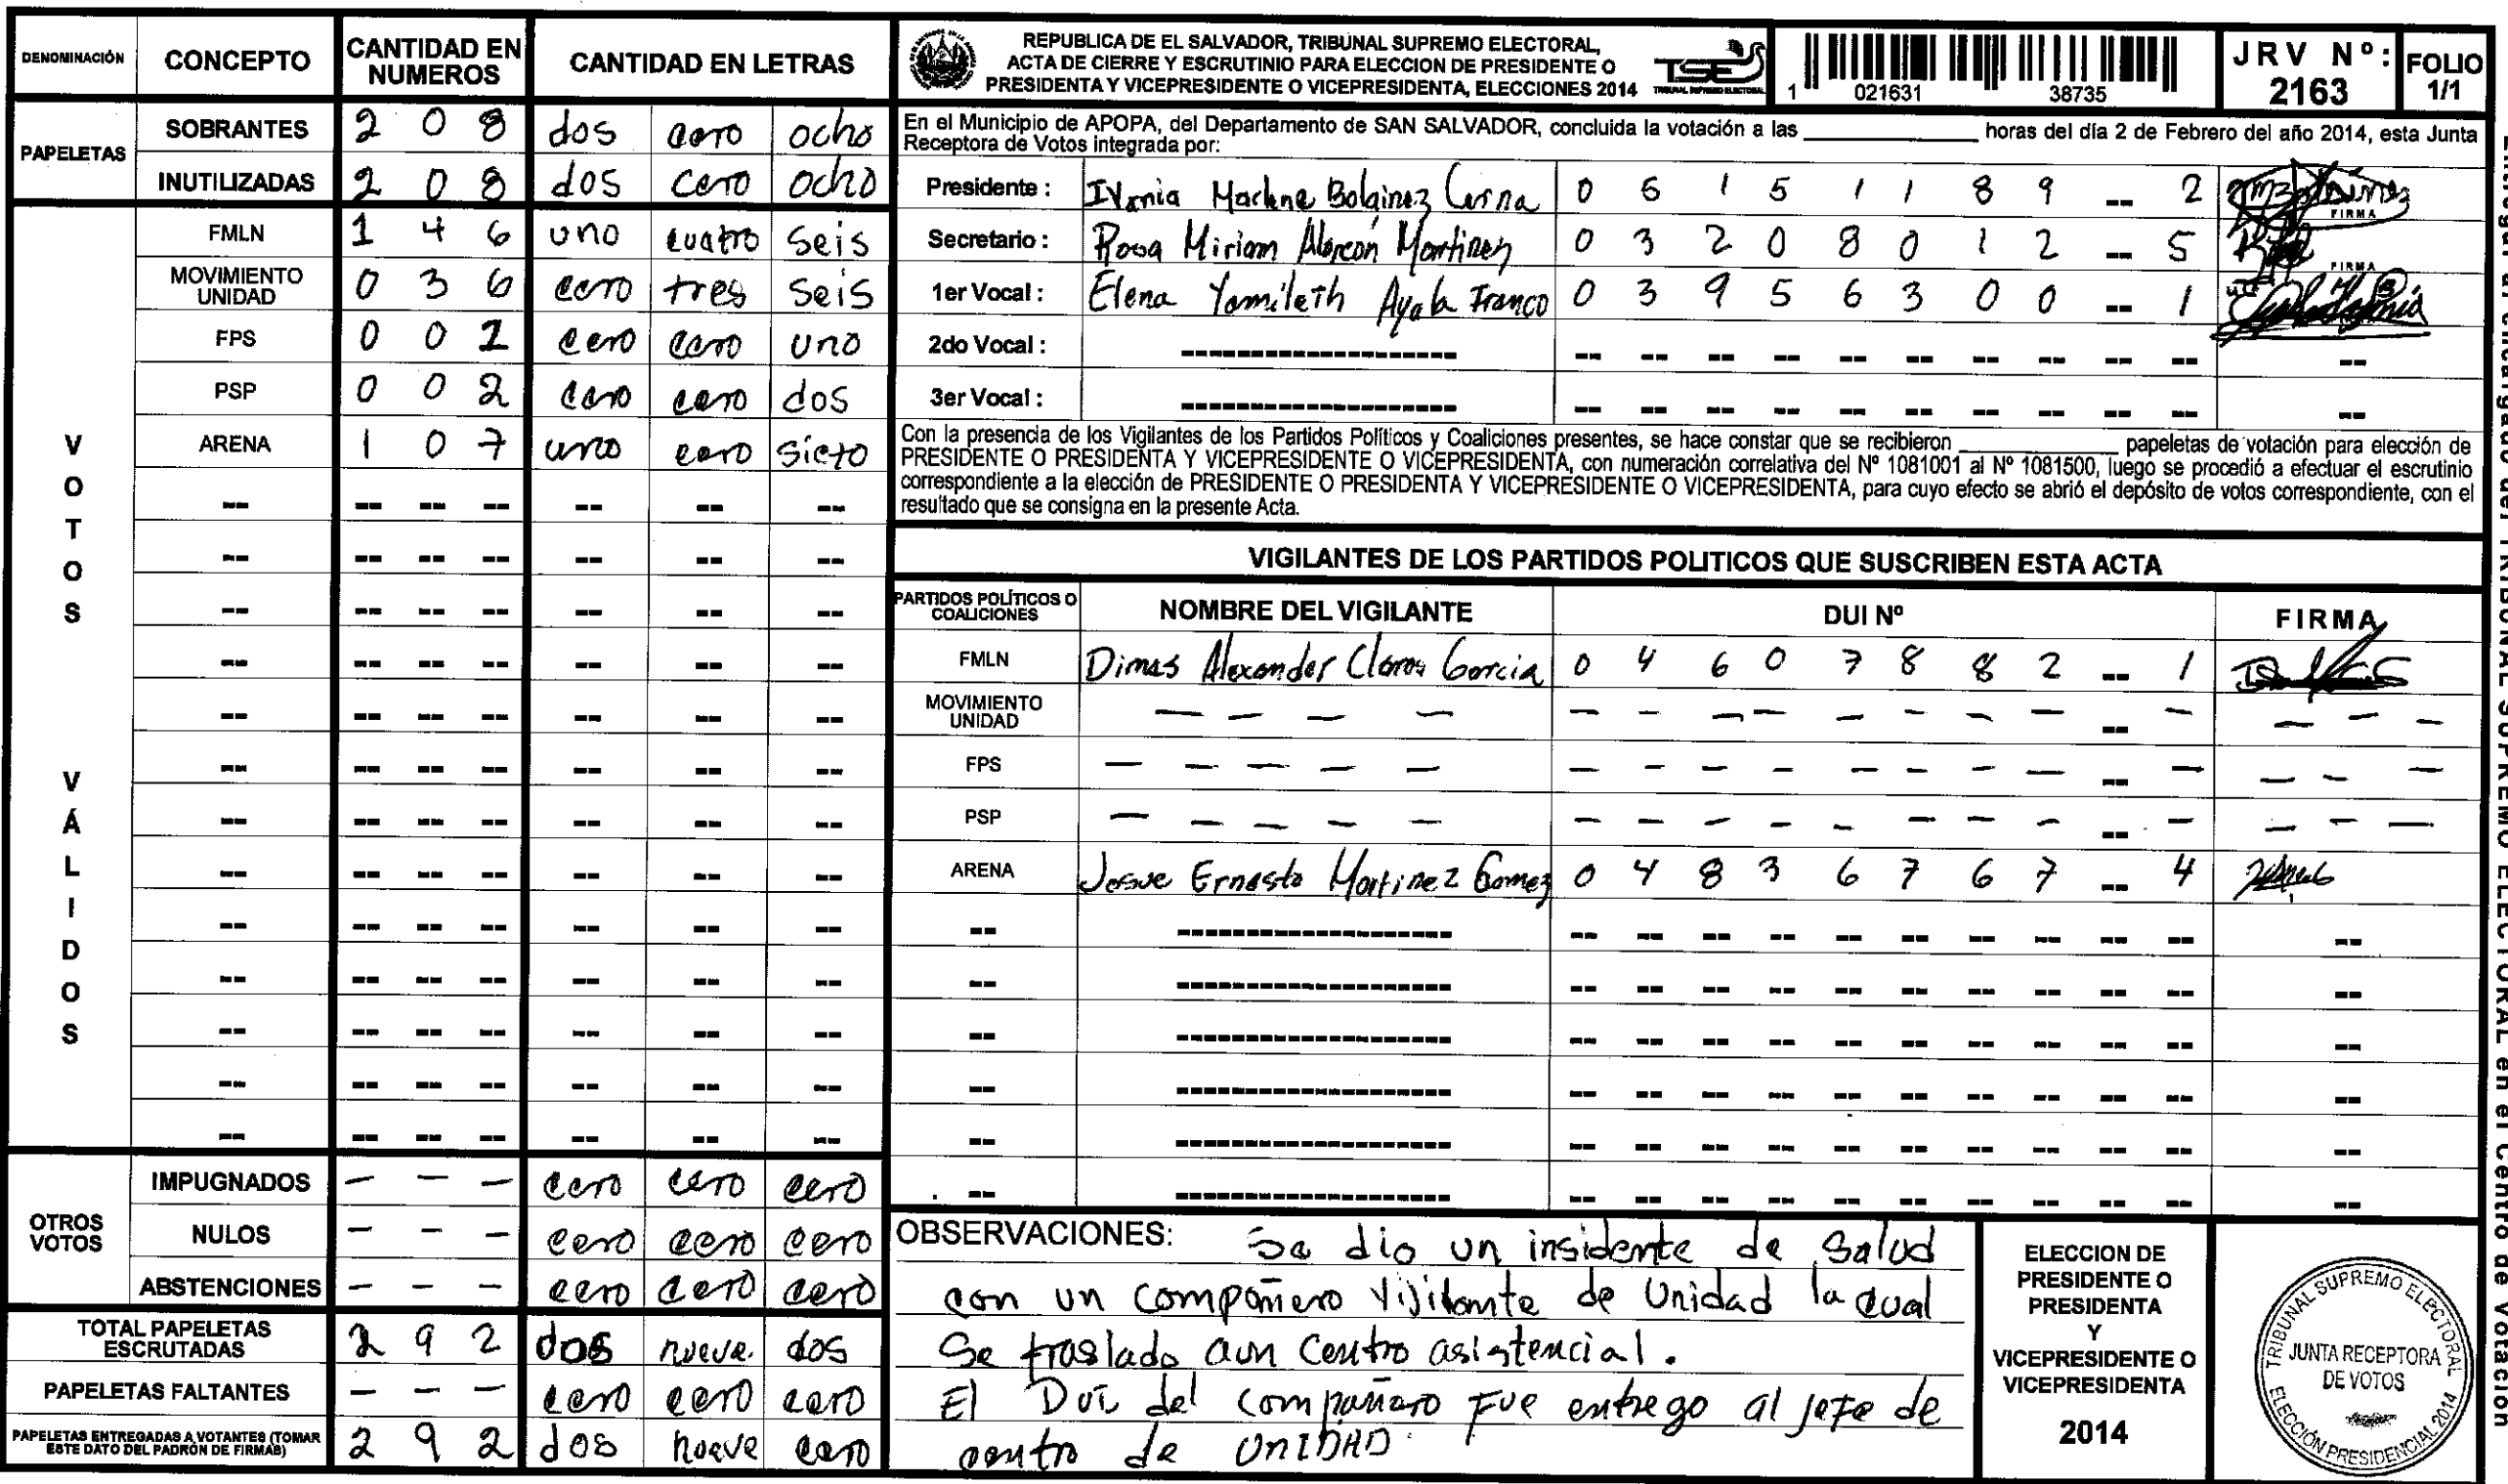 DENOMINACIÓN CONCEPTO CANTIDAD EN NUMEROS CANTIDAD EN LETRAS
PAPELETAS
SOBRANTES 2 0 8 dos cero ocho
INUTILIZADAS 2 0 8 dos cero ocho
VOTOS VÁLIDOS
FMLN 1 4 6 uno cuatro seis
MOVIMIENTO UNIDAD 0 3 6 cero tres seis
FPS 0 0 1 cero cero uno
PSP 0 0 2 cero cero dos
ARENA 1 0 7 uno cero siete
-- -- -- -- -- -- --
-- -- -- -- -- -- --
-- -- -- -- -- -- --
-- -- -- -- -- -- --
-- -- -- -- -- -- --
-- -- -- -- -- -- --
-- -- -- -- -- -- --
-- -- -- -- -- -- --
-- -- -- -- -- -- --
-- -- -- -- -- -- --
-- -- -- -- -- -- --
-- -- -- -- -- -- --
-- -- -- -- -- -- --
OTROS VOTOS
IMPUGNADOS - - - cero cero cero
NULOS - - - cero cero cero
ABSTENCIONES - - - cero cero cero
TOTAL PAPELETAS ESCRUTADAS 2 9 2 dos nueve dos
PAPELETAS FALTANTES - - - cero cero cero
PAPELETAS ENTREGADAS A VOTANTES (TOMAR ESTE DATO DEL PADRÓN DE FIRMAS) 2 9 2 dos nueve cero
REPUBLICA DE EL SALVADOR, TRIBUNAL SUPREMO ELECTORAL,
ACTA DE CIERRE Y ESCRUTINIO PARA ELECCION DE PRESIDENTE O
PRESIDENTA Y VICEPRESIDENTE O VICEPRESIDENTA, ELECCIONES 2014
TSE
TRIBUNAL SUPREMO ELECTORAL
1 021631 38735
JRV Nº: 2163
FOLIO 1/1
En el Municipio de APOPA, del Departamento de SAN SALVADOR, concluida la votación a las ____________ horas del día 2 de Febrero del año 2014, esta Junta
Receptora de Votos integrada por:
Presidente : Ivania Marlene Bolainez Cerna 0 5 1 5 1 1 8 9 -- 2 FIRMA
Secretario : Rosa Miriam Alarcón Martinez 0 3 2 0 8 0 1 2 -- 5 FIRMA
1er Vocal : Elena Yamileth Ayala Franco 0 3 9 5 6 3 0 0 -- 1
2do Vocal : ------------------ -- -- -- -- -- -- -- -- -- -- --
3er Vocal : ------------------ -- -- -- -- -- -- -- -- -- -- --
Con la presencia de los Vigilantes de los Partidos Políticos y Coaliciones presentes, se hace constar que se recibieron ____________ papeletas de votación para elección de
PRESIDENTE O PRESIDENTA Y VICEPRESIDENTE O VICEPRESIDENTA, con numeración correlativa del Nº 1081001 al Nº 1081500, luego se procedió a efectuar el escrutinio
correspondiente a la elección de PRESIDENTE O PRESIDENTA Y VICEPRESIDENTE O VICEPRESIDENTA, para cuyo efecto se abrió el depósito de votos correspondiente, con el
resultado que se consigna en la presente Acta.
VIGILANTES DE LOS PARTIDOS POLITICOS QUE SUSCRIBEN ESTA ACTA
PARTIDOS POLÍTICOS O COALICIONES NOMBRE DEL VIGILANTE DUI Nº FIRMA
FMLN Dimas Alexander Claros Garcia 0 4 6 0 7 8 8 2 -- 1
MOVIMIENTO UNIDAD - - - - - - - - - - - - -- - - - -
FPS - - - - - - - - - - - - - -- - - - -
PSP - - - - - - - - - - - - - -- - - - -
ARENA Josue Ernesto Martinez Gomez 0 4 8 3 6 7 6 7 -- 4
-- ------------------ -- -- -- -- -- -- -- -- -- -- --
-- ------------------ -- -- -- -- -- -- -- -- -- -- --
-- ------------------ -- -- -- -- -- -- -- -- -- -- --
-- ------------------ -- -- -- -- -- -- -- -- -- -- --
-- ------------------ -- -- -- -- -- -- -- -- -- -- --
-- ------------------ -- -- -- -- -- -- -- -- -- -- --
OBSERVACIONES: Se dio un insidente de Salud
con un compañero vijilante de Unidad la cual
Se traslado aun Centro asistencial.
El Dui del compañero fue entrego al jefe de
centro de UNIDAD
ELECCION DE
PRESIDENTE O
PRESIDENTA
Y
VICEPRESIDENTE O
VICEPRESIDENTA
2014
TRIBUNAL SUPREMO ELECTORAL
JUNTA RECEPTORA
DE VOTOS
ELECCIÓN PRESIDENCIAL 2014
Entregar al encargado del TRIBUNAL SUPREMO ELECTORAL en el Centro de Votación